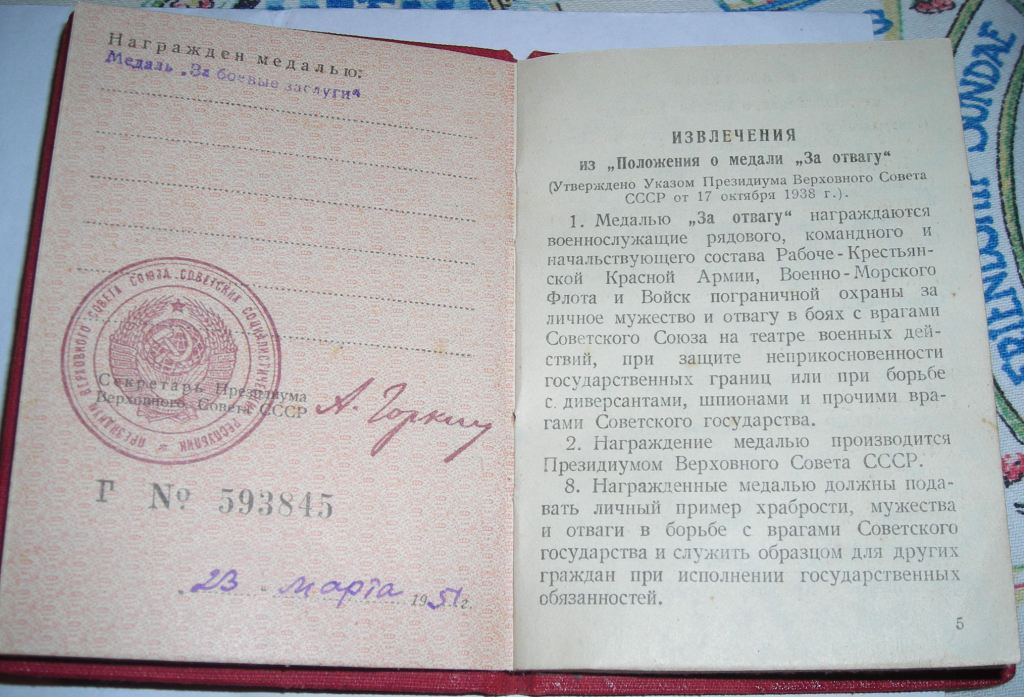 Награжден медалью:
Медаль „За боевые заслуги“
ПРЕЗИДИУМ ВЕРХОВНОГО СОВЕТА СОЮЗА СОВЕТСКИХ СОЦИАЛИСТИЧЕСКИХ РЕСПУБЛИК
Секретарь Президиума
Верховного Совета СССР
А. Горкин
Г № 593845
23 марта 1951 г.
ИЗВЛЕЧЕНИЯ
из „Положения о медали „За отвагу“
(Утверждено Указом Президиума Верховного Совета
СССР от 17 октября 1938 г.).
1. Медалью „За отвагу“ награждаются
военнослужащие рядового, командного и
начальствующего состава Рабоче-Крестьян-
ской Красной Армии, Военно-Морского
Флота и Войск пограничной охраны за
личное мужество и отвагу в боях с врагами
Советского Союза на театре военных дей-
ствий, при защите неприкосновенности
государственных границ или при борьбе
с диверсантами, шпионами и прочими вра-
гами Советского государства.
2. Награждение медалью производится
Президиумом Верховного Совета СССР.
8. Награжденные медалью должны пода-
вать личный пример храбрости, мужества
и отваги в борьбе с врагами Советского
государства и служить образцом для других
граждан при исполнении государственных
обязанностей.
5
FRIENDSHIP SUNDAE